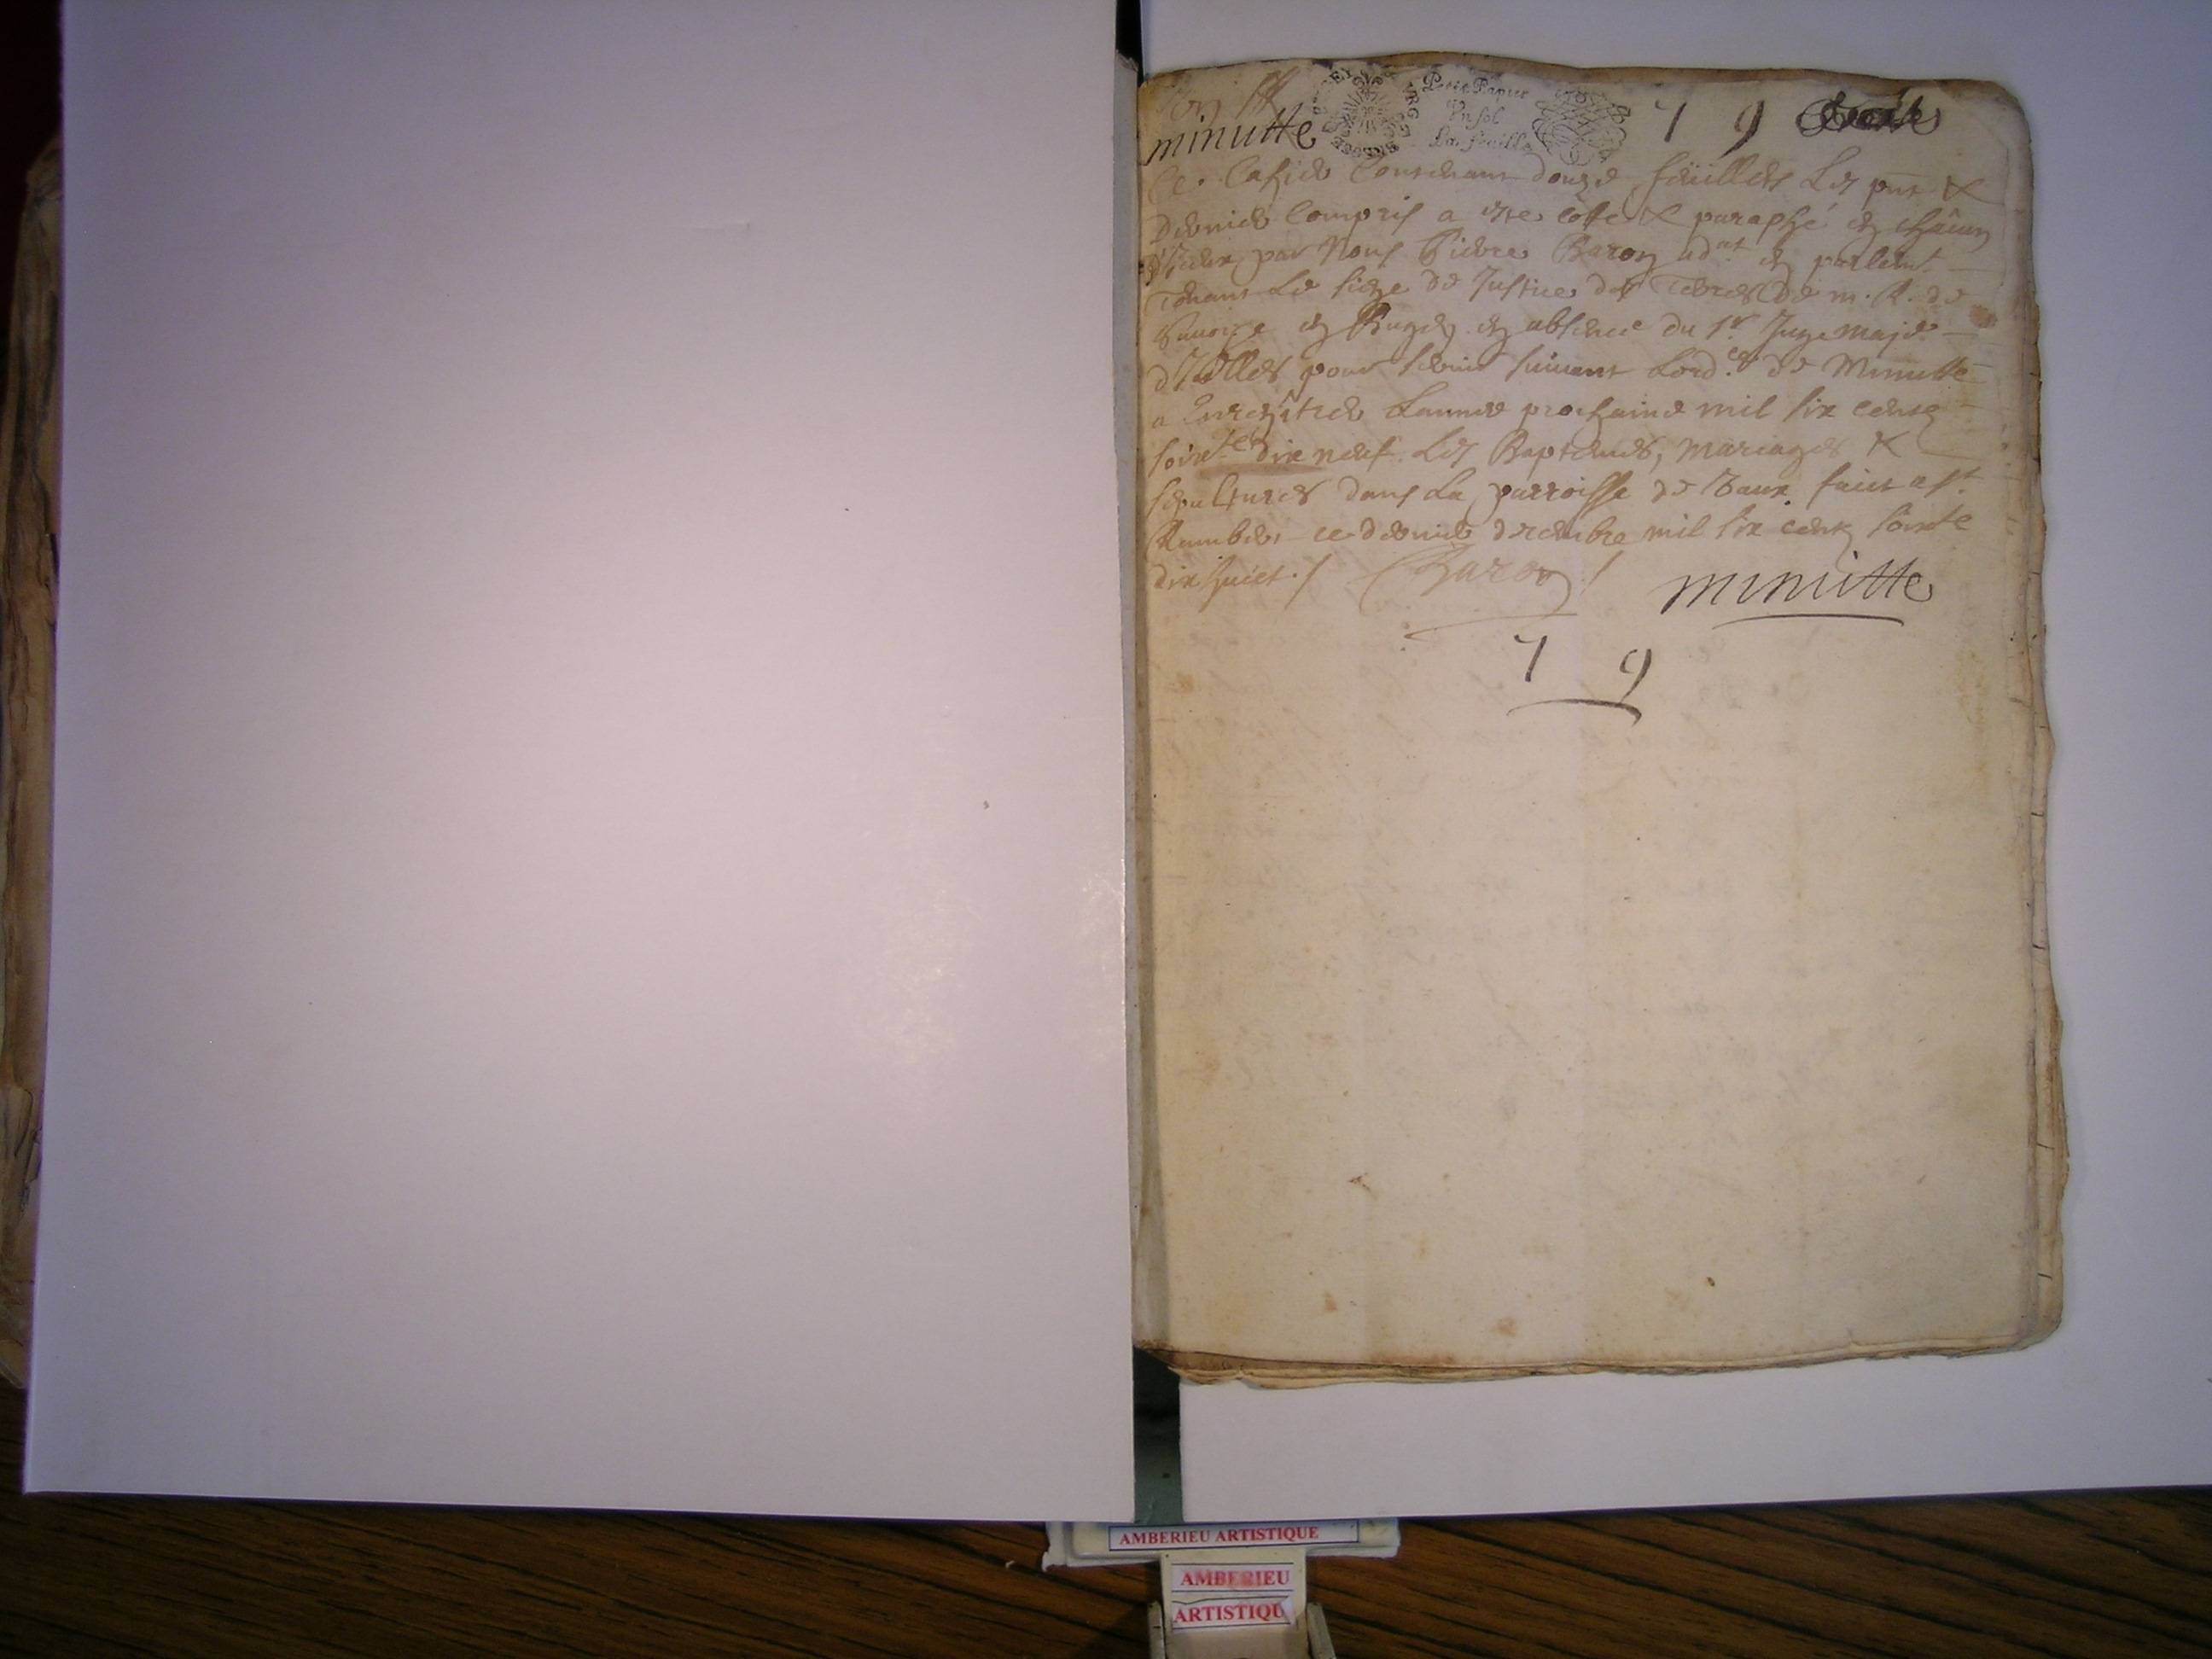 minutte
Petit Papier
Un sol
La feuille
7 9
Ce Cahier Contenant douze feüillets Les pnt &
dernier Compris a este cotte & paraphé en châcun
par Nous Pierre Baron ad.at en parlemt
Tenant Le siege de Justice des Terres de m. R. de
Savoye en Bugey en absence du Sr Juge maje
d'Icelles pour servir suivant Lord.ce de Minutte
a Enregistrer Lannee prochaine mil six cents
soixte dix neuf Les Baptemes, mariages &
sepultures dans La parroisse de Vaux faict a St
Rambert ce dernier decembre mil six cents soixte
dix huict ./ Baron /
minutte
7 9
AMBERIEU ARTISTIQUE
AMBERIEU
ARTISTIQU